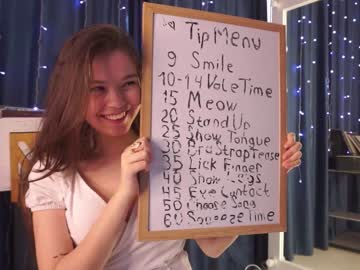 Tip Menu
9 Smile
10-14 Vote Time
15 Meow
20 Stand Up
25 Show Tongue
30 Bra Strap Tease
35 Lick Finger
40 Show Legs
45 Eye Contact
50 Choose Song
60 Squeeze Time